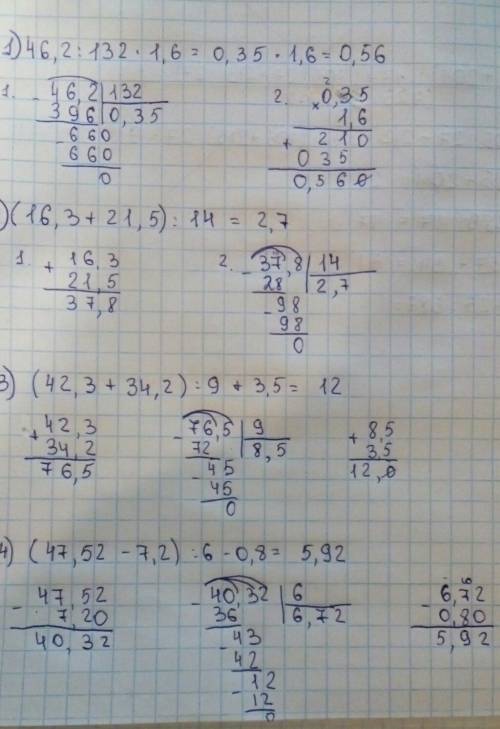 1) 46,2 : 132 · 1,6 = 0,35 · 1,6 = 0,56
1.
- 46,2 | 132
396 | 0,35
- 660
660
0
2.
2
× 0,35
1,6
+ 210
035
0,560
) (16,3 + 21,5) : 14 = 2,7
1.
+ 16,3
21,5
37,8
2.
- 37,8 | 14
28 | 2,7
- 98
98
0
3) (42,3 + 34,2) : 9 + 3,5 = 12
+ 42,3
34,2
76,5
- 76,5 | 9
72 | 8,5
- 45
45
0
+ 8,5
3,5
12,0
4) (47,52 - 7,2) : 6 - 0,8 = 5,92
- 47,52
7,20
40,32
- 40,32 | 6
36 | 6,72
- 43
42
- 12
12
0
- 6,72
0,80
5,92